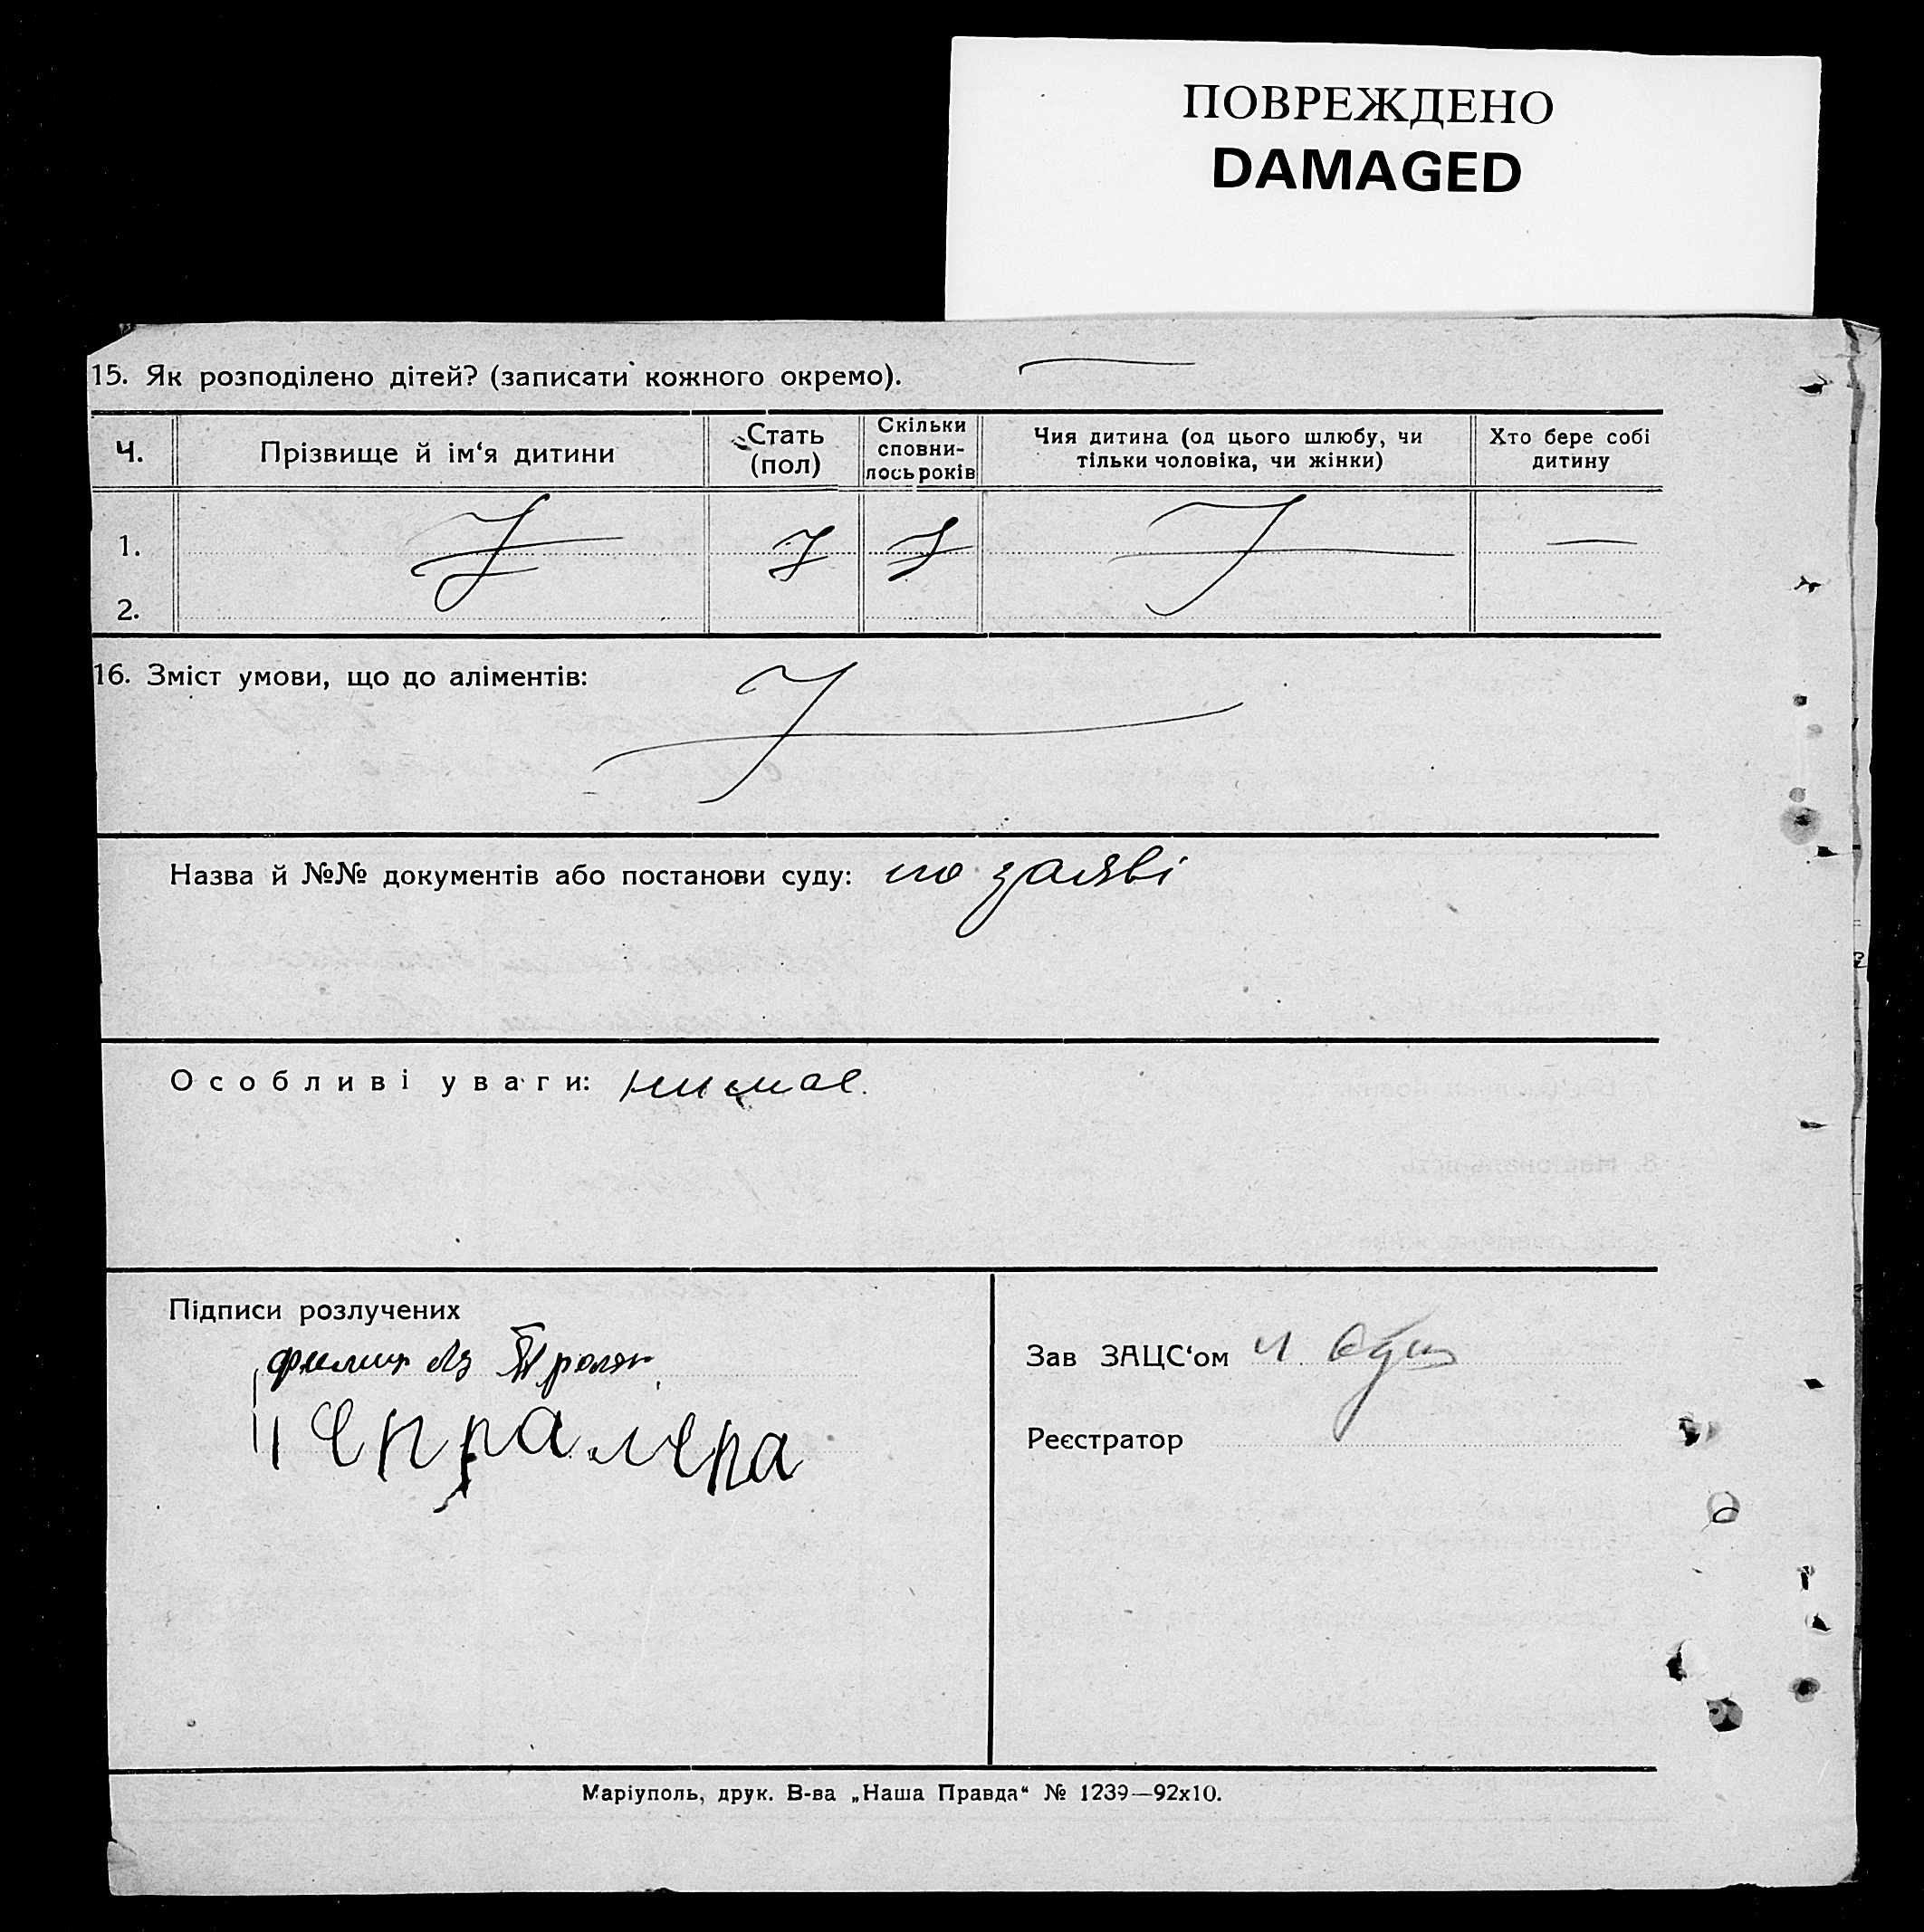 ПОВРЕЖДЕНО
DAMAGED
15. Як розподілено дітей? (записати кожного окремо).
Ч.
Прізвище й ім‘я дитини
Стать
(пол)
Скільки
сповни-
лось років
Чия дитина (од цього шлюбу, чи
тільки чоловіка, чи жінки)
Хто бере собі
дитину
1.
2.
16. Зміст умови, що до аліментів:
Назва й №№ документів або постанови суду: по заяві
Особливі уваги: нимає.
Підписи розлучених
Зав ЗАЦС‘ом
Реєстратор
Маріуполь, друк. В-ва „Наша Правда“ № 1239—92x10.